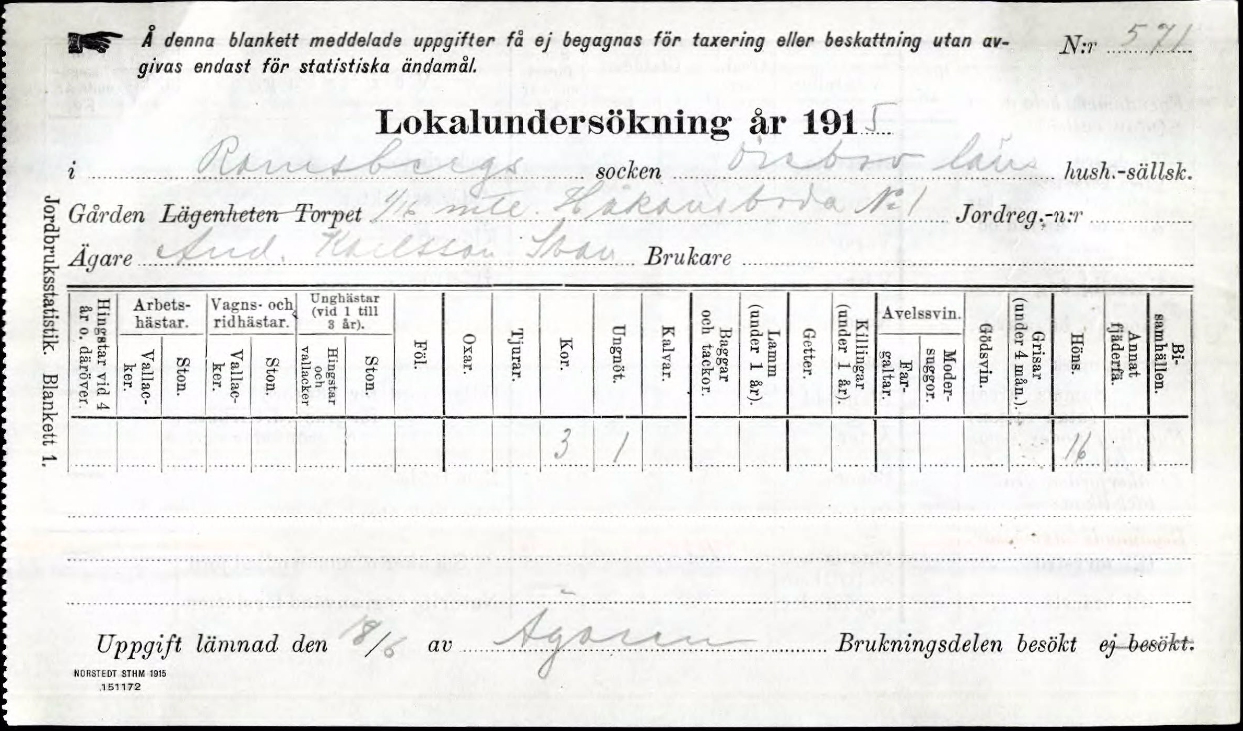 Å denna blankett meddelade uppgifter få ej begagnas för taxering eller beskattning utan av-
givas endast för statistiska ändamål.
N:r 571
Lokalundersökning år 1915
i Ramsbergs socken Örebro läns hush.-sällsk.
Gården Lägenheten Torpet 1/16 mtl Håkansboda No 1 Jordreg.-n:r
Ägare And. Karlsson Svan Brukare
Jordbruksstatistik. Blankett 1.
Hingstar vid 4 år o. däröver.
Arbets-hästar.
Vallac-ker.
Ston.
Vagns- och ridhästar.
Vallac-ker.
Ston.
Unghästar (vid 1 till 3 år).
Hingstar och vallacker
Ston.
Föl.
Oxar.
Tjurar.
Kor.
Ungnöt.
Kalvar.
Baggar och tackor.
Lamm (under 1 år).
Getter.
Killingar (under 1 år).
Avelssvin.
Far-galtar.
Moder-suggor.
Gödsvin.
Grisar (under 4 mån.).
Höns.
Annat fjäderfä.
Bi-samhällen.
3 1 16
Uppgift lämnad den 18/6 av Ägaren Brukningsdelen besökt ej besökt.
NORSTEDT STHM 1915
151172